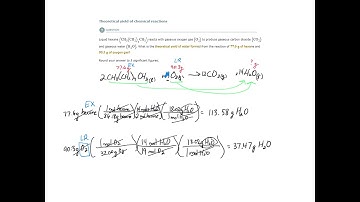 Theoretical yield of chemical reactions
Liquid hexane (CH₃(CH₂)₄CH₃) reacts with gaseous oxygen gas (O₂) to produce gaseous carbon dioxide (CO₂)
and gaseous water (H₂O). What is the theoretical yield of water formed from the reaction of 77.6 g of hexane and
of oxygen gas?
Round your answer to 4 significant figures.
77.6g EX LR
2CH₃(CH₂)₄CH₃(l) + 19O₂(g) → 12CO₂(g) + 14H₂O(g)
EX
77.6g hexane (1 mol hexane / 86.18g hexane) (14 mol H₂O / 2 mol hexane) (18.02g H₂O / 1 mol H₂O) = 113.58 g H₂O
LR
O₂ (1 mol O₂ / 32.00g O₂) (14 mol H₂O / 19 mol O₂) (18.02g H₂O / 1 mol H₂O) = 37.47g H₂O